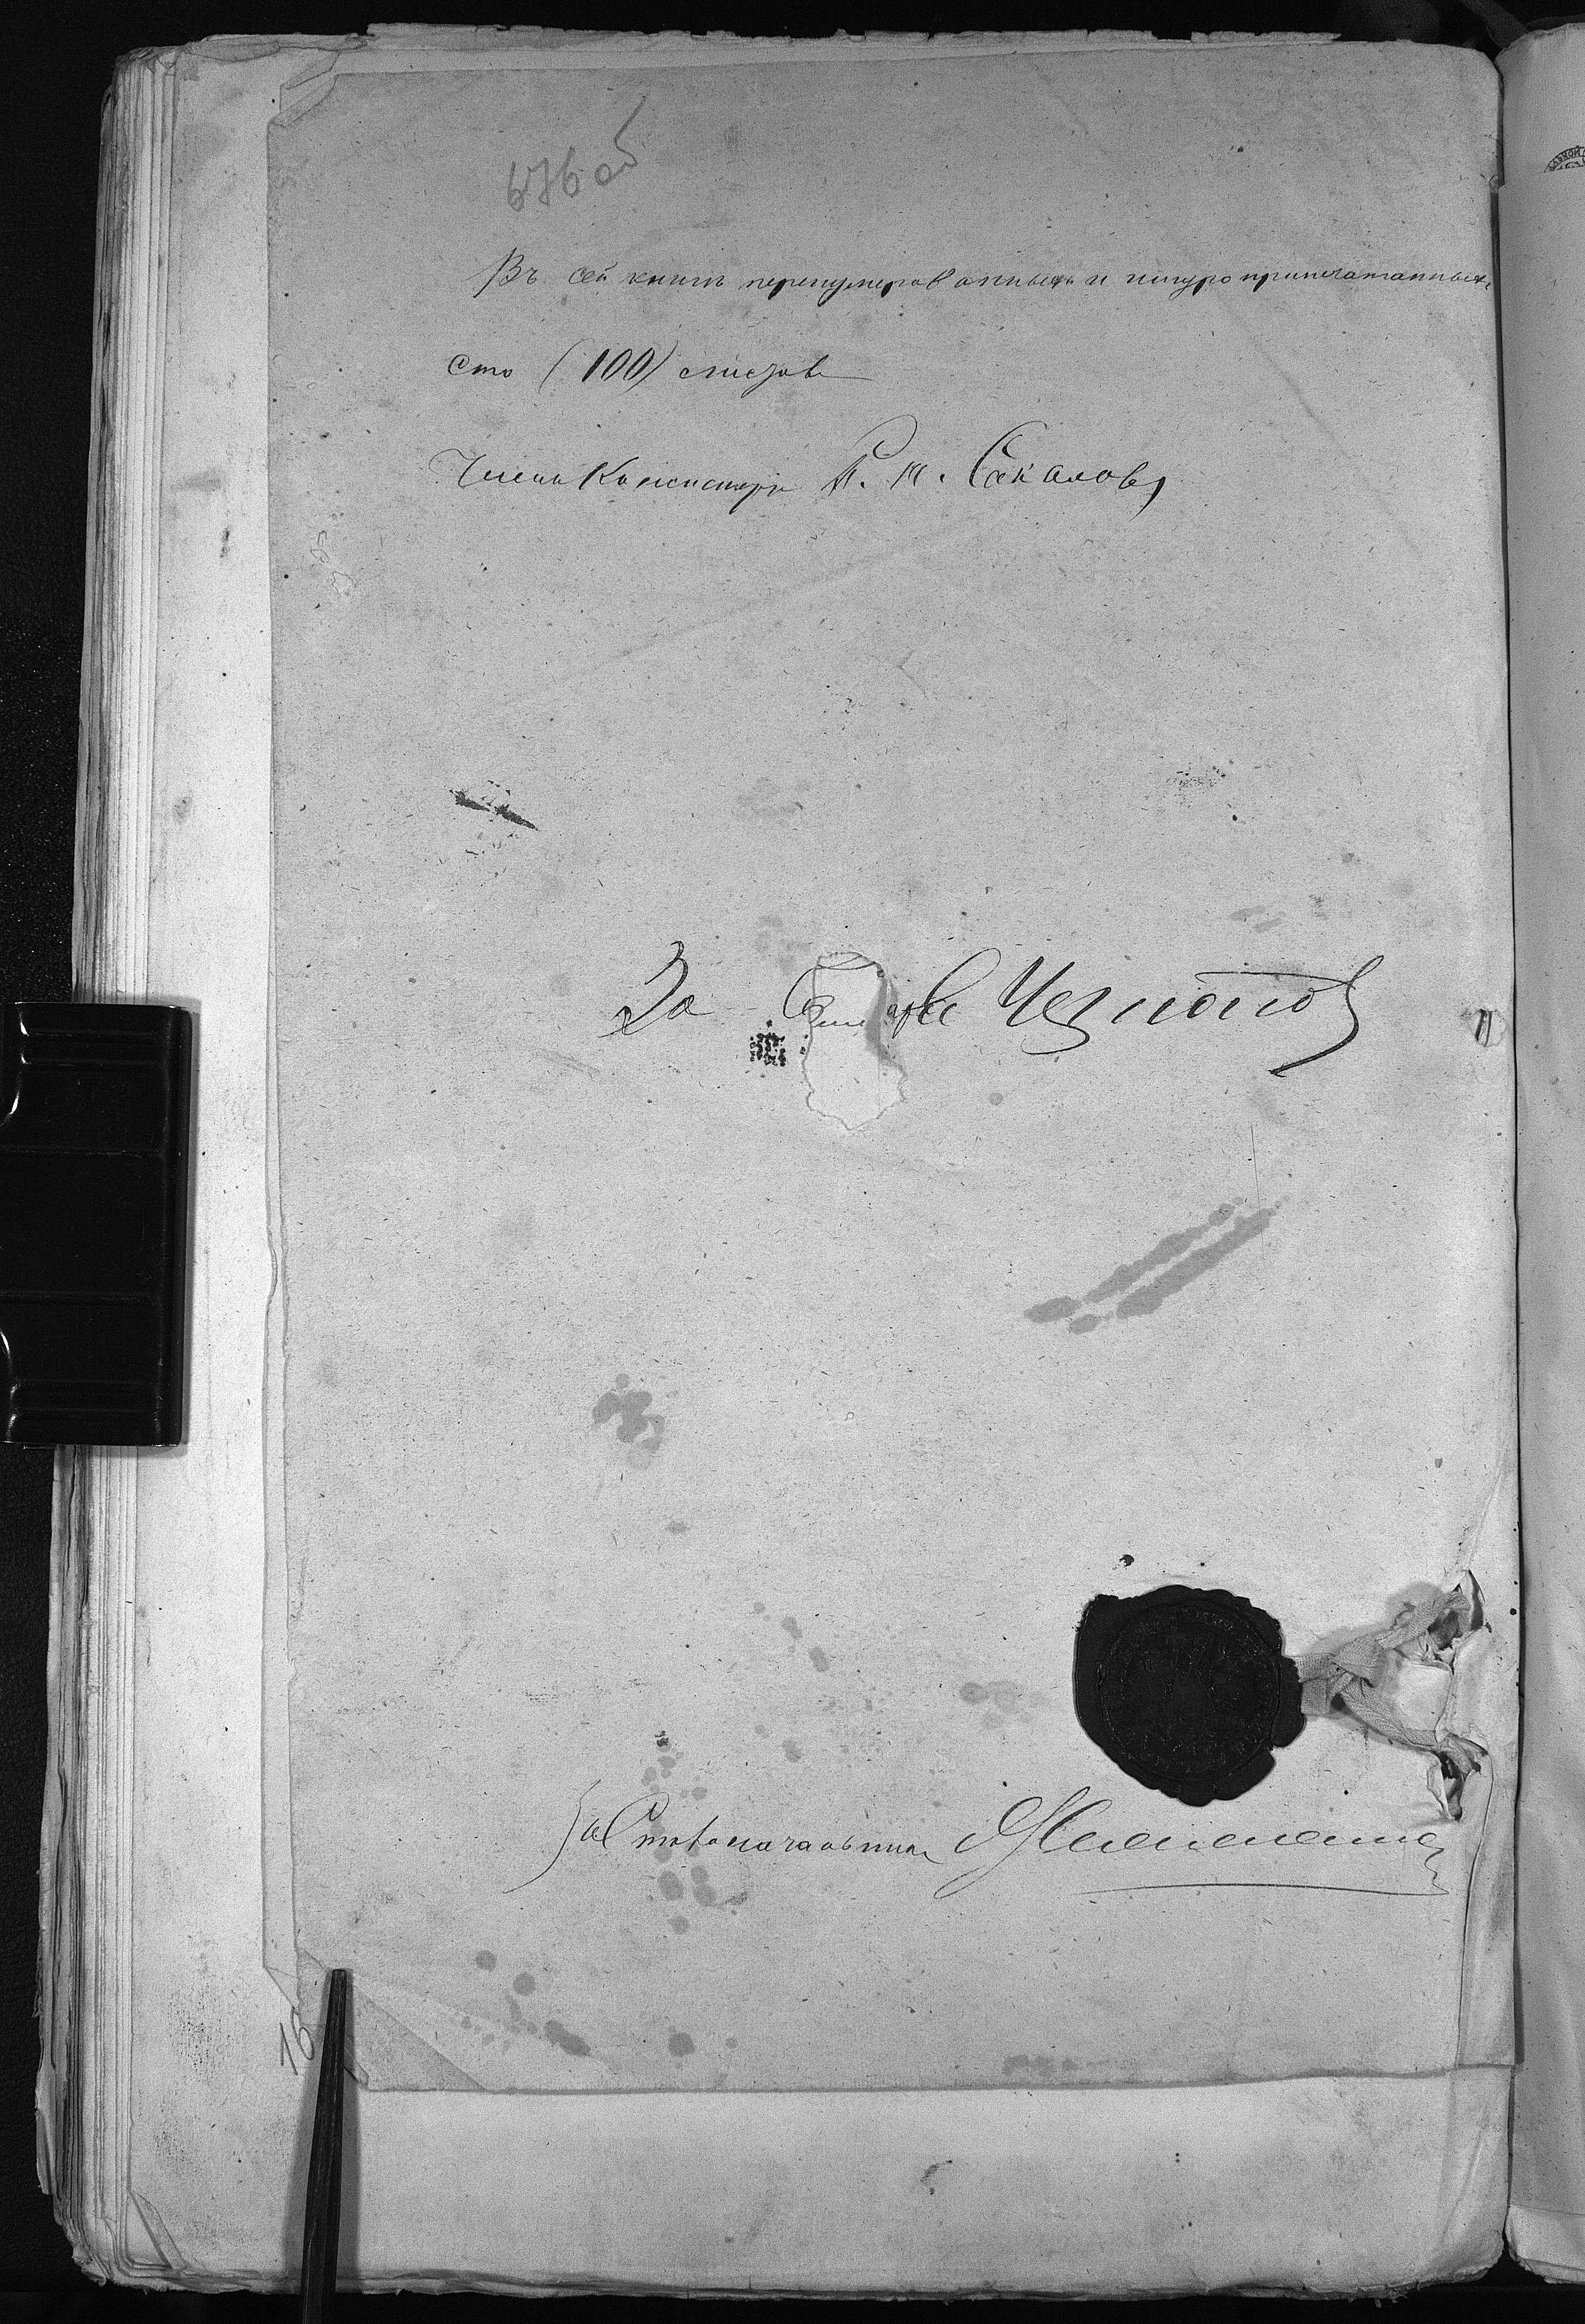 676 об
Въ сей книгѣ перенумерованныхъ и шнуроприпечатанныхъ
сто (100) листовъ
Членъ Консисторiи Соколовъ
За Секретаря
За Столоначальника
16